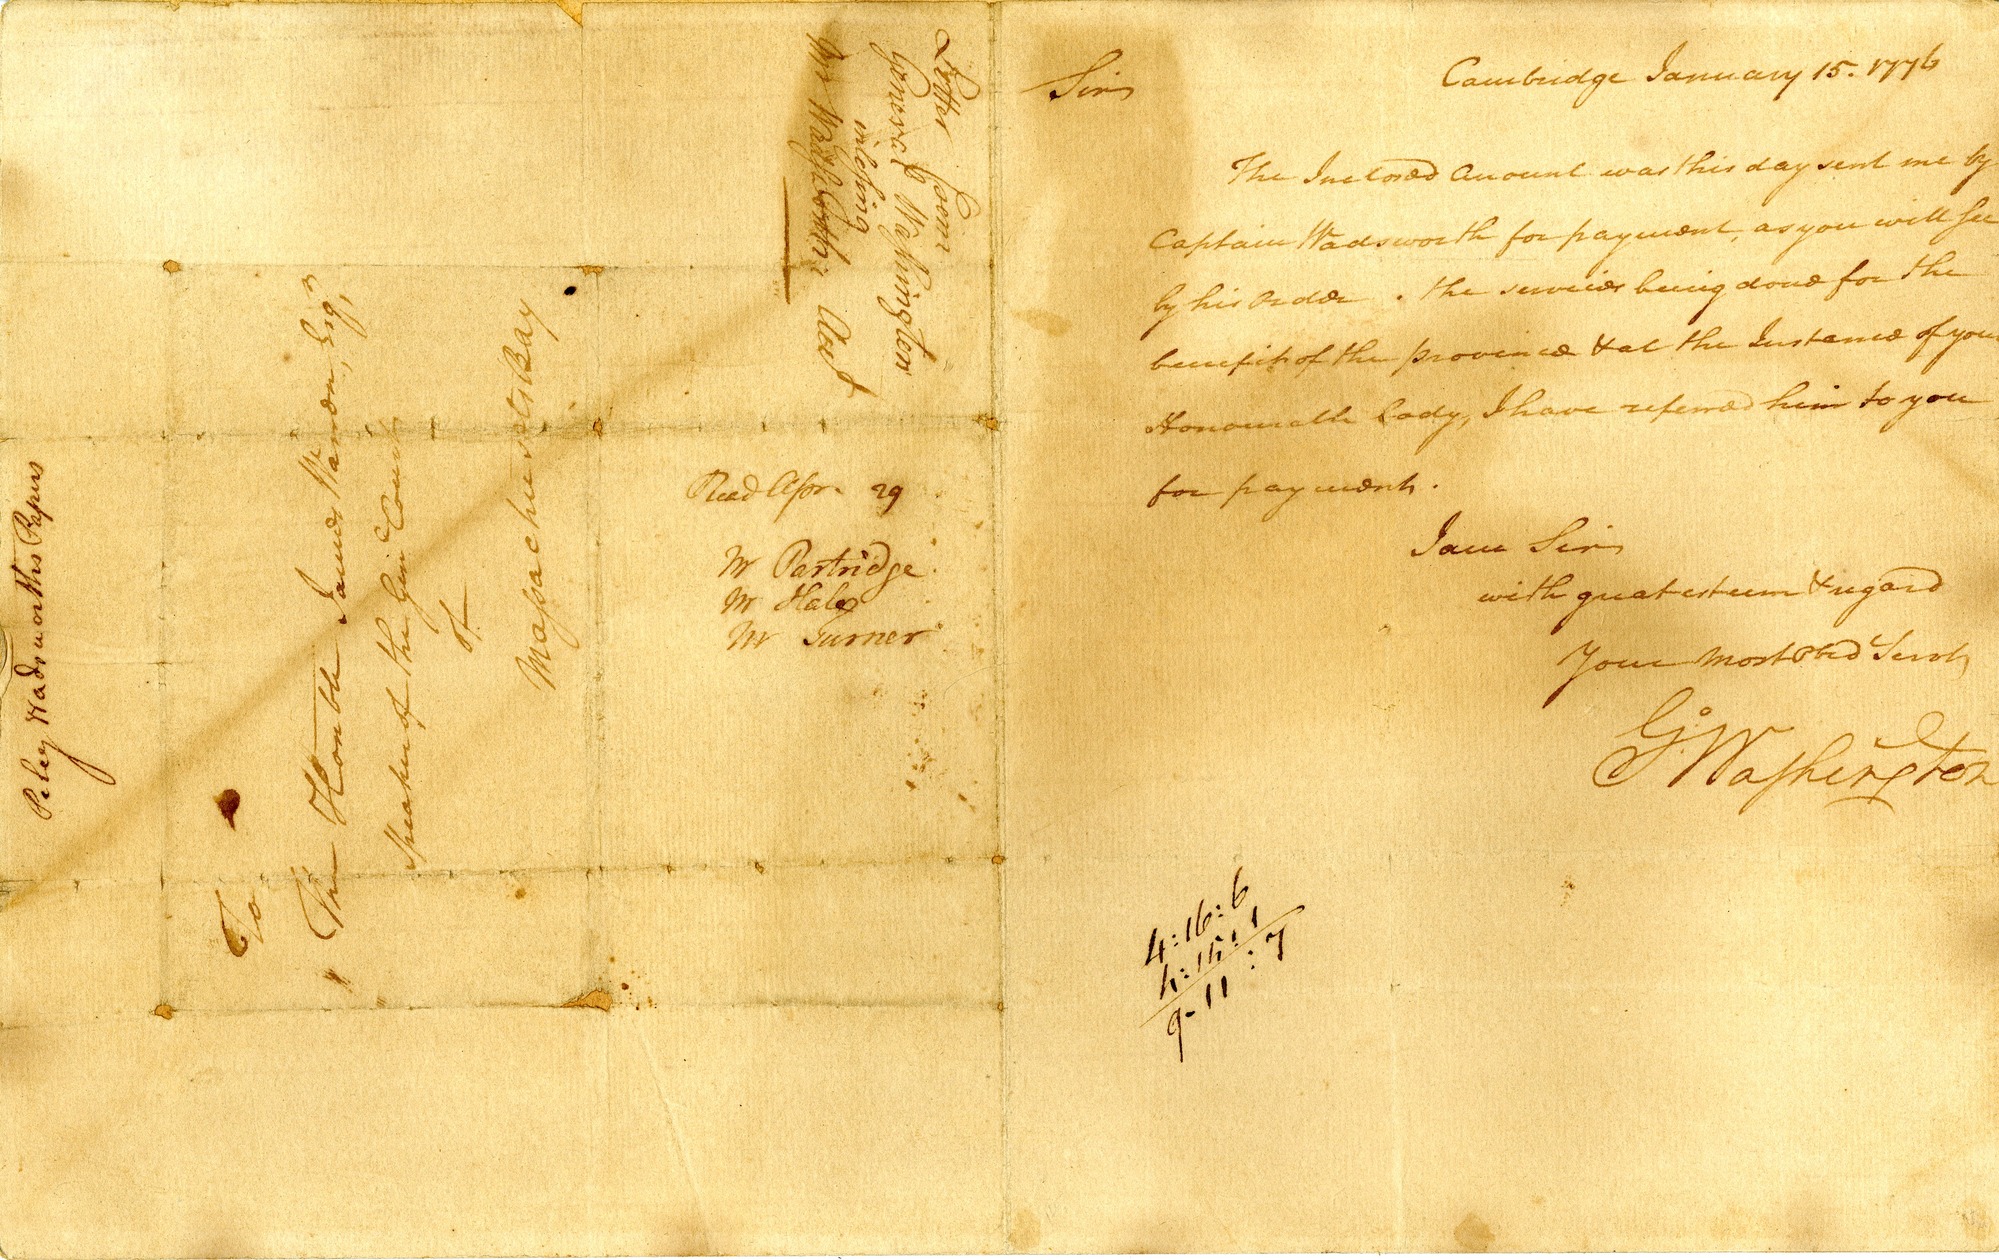 Peleg Wadsworths Papers
To
The Honble James Warren, Esqr
Speaker of the Genl Court
of
Massachusetts Bay
Letter from
General Washington
inclosing
Mr Wadsworths Acct
Read Apr. 29
Mr Partridge
Mr Hale
Mr Turner
Cambridge January 15. 1776
Sir
The Inclosed Account was this day sent me by
Captain Wadsworth for payment, as you will see
by his Order. The services being done for the
benefit of the province & at the Instance of your
Honourable Body, I have referred him to you
for payment.
I am Sir
with great esteem & regard
Your most Obed Servt
Go: Washington
4:16:6
4:15:1
9-11:7